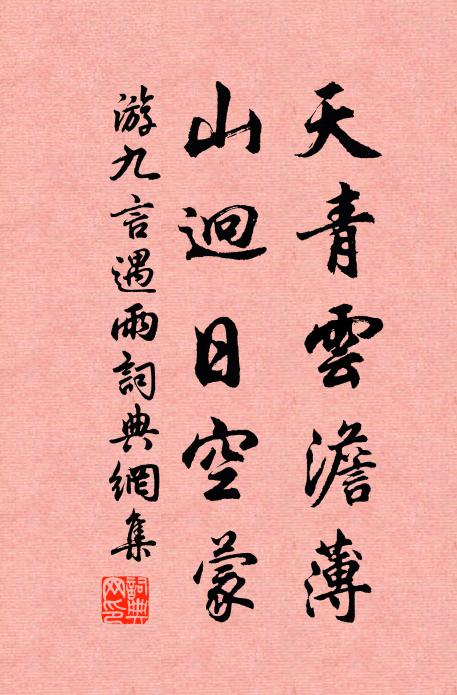 天青雲澹薄
山迴日空蒙
游九言遇雨詞典網集
詞典網印